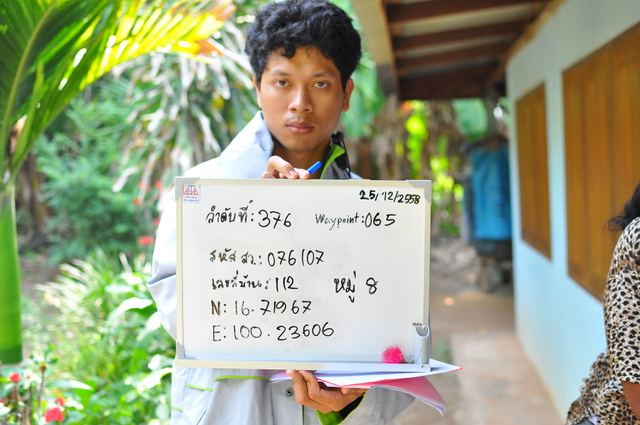 25/12/2558
ลำดับที่: 376 Waypoint: 065
รหัส สว.: 076107
เลขที่บ้าน: 112 หมู่ 8
N: 16.71967
E: 100.23606